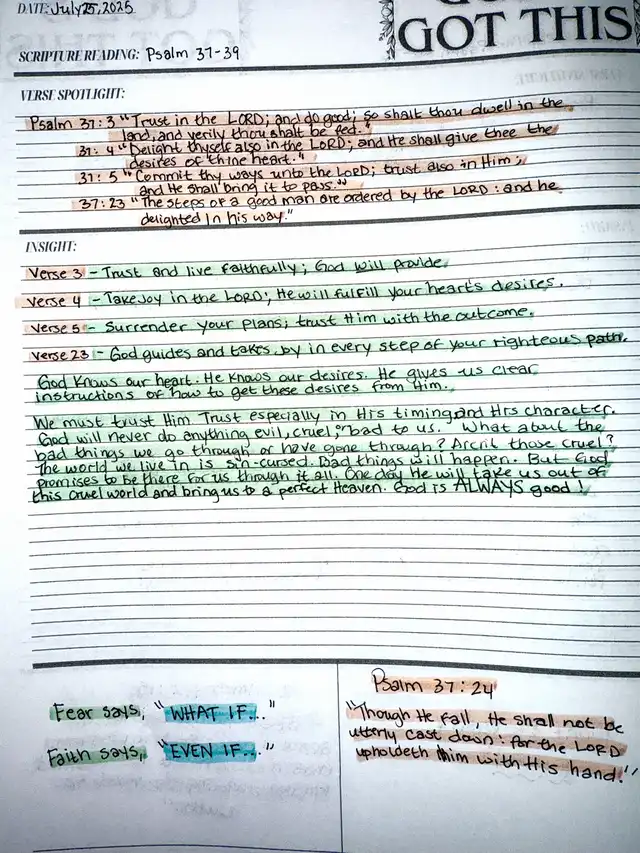 DATE: July 25, 2025
GOT THIS
SCRIPTURE READING: Psalm 37-39
VERSE SPOTLIGHT:
Psalm 37:3 "Trust in the LORD; and do good; so shalt thou dwell in the
land, and verily thou shalt be fed."
37:4 "Delight thyself also in the LORD; and He shall give thee the
desires of thine heart."
37:5 "Commit thy ways unto the LORD; trust also in Him;
and He shall bring it to pass."
37:23 "The steps of a good man are ordered by the LORD: and he
delighted in his way."
INSIGHT:
Verse 3 - Trust and live faithfully; God will provide.
Verse 4 - Take joy in the LORD; He will fulfill your heart's desires.
Verse 5 - Surrender your plans; trust Him with the outcome.
Verse 23 - God guides and takes by in every step of your righteous path.
God knows our heart. He knows our desires. He gives us clear
instructions of how to get these desires from Him.
We must trust Him. Trust especially in His timing and His character.
God will never do anything evil, cruel, "bad to us. What about the
bad things we go through or have gone through? Aren't those cruel?
The world we live in is sin-cursed. Bad things will happen. But God
promises to be there for us through it all. One day He will take us out of
this cruel world and bring us to a perfect Heaven. God is ALWAYS good!
Fear says, "WHAT IF..."
Faith says, "EVEN IF..."
Psalm 37:24
"Though He fall, He shall not be
utterly cast down: for the LORD
upholdeth him with His hand."